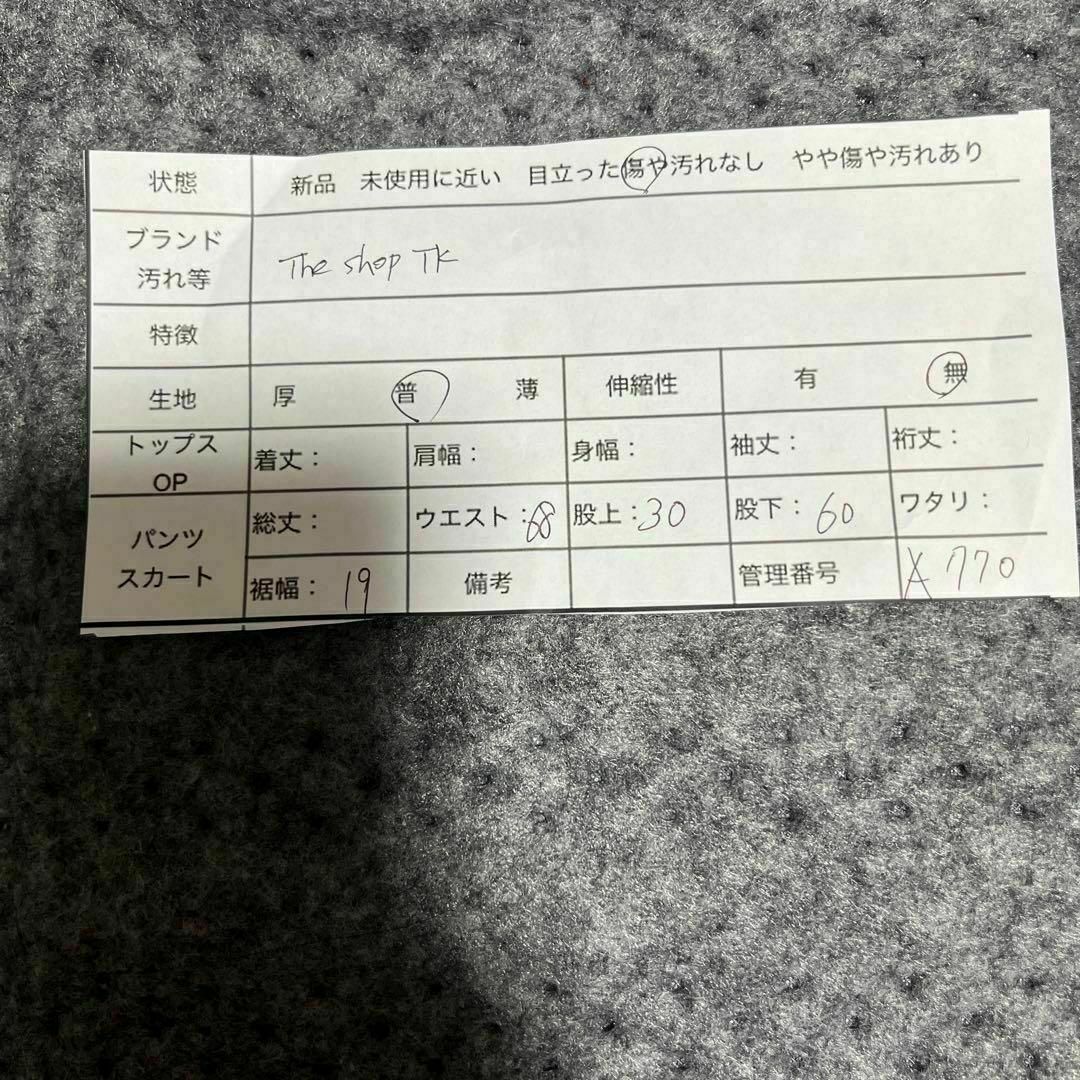 状態 新品 未使用に近い 目立った傷や汚れなし やや傷や汚れあり
ブランド
汚れ等 The shop TK
特徴
生地 厚 普 薄 伸縮性 有 無
トップス
OP 着丈： 肩幅： 身幅： 袖丈： 裄丈：
パンツ
スカート
総丈： ウエスト：68 股上：30 股下：60 ワタリ：
裾幅：19 備考 管理番号 770